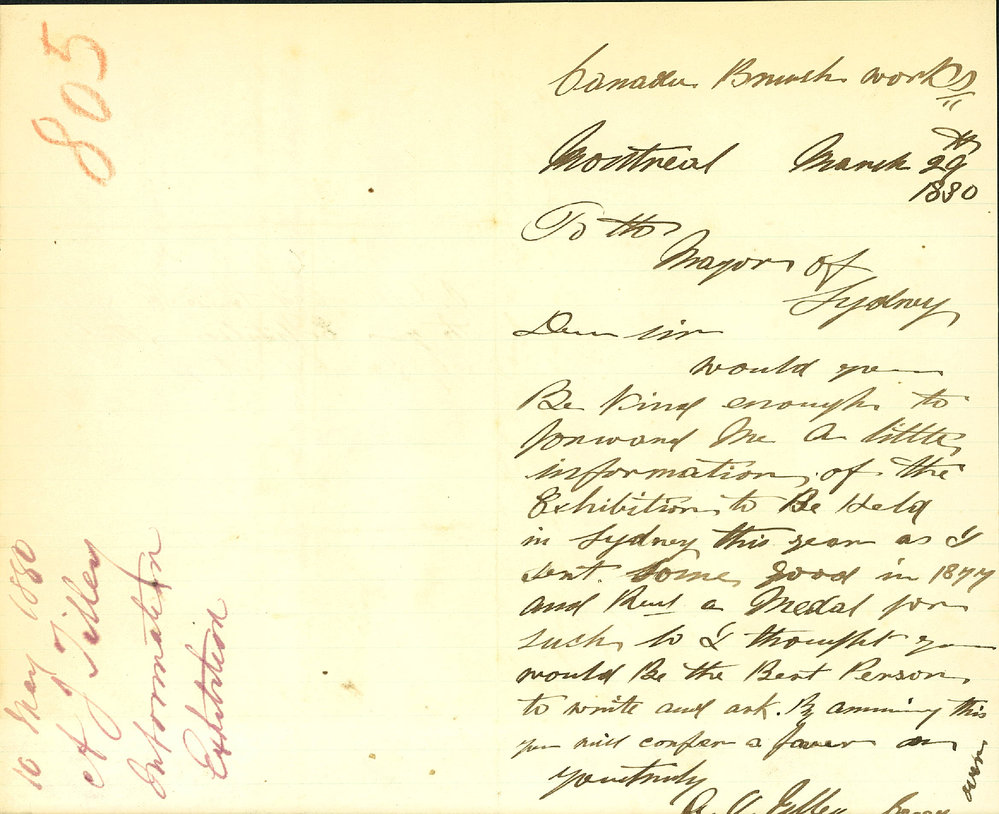 805
10 May 1880
A J Tilley
Information
Exhibition
Canada Brush works
Montreal March 29th
1880
To the
Mayor of
Sydney
Dear sir
would you
Be Kind enough to
forward Me A little
information of the
Exhibition to Be Held
in Sydney this year as I
sent some good in 1877
and Recd a Medal for
such so I thought you
would Be the Best Person
to write and ask. By answering this
you will confer a faver on
yourstruly
Tilley
over